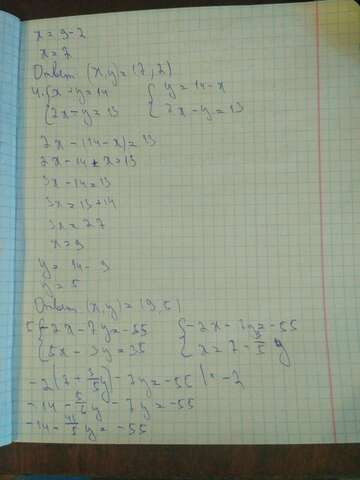 x = 9-2
x = 7
Ответ (x,y) = (7,2)
4. {x - y = 14 {y = 14 - x
{2x - y = 13 {2x - y = 13
2x - (14 - x) = 13
2x - 14 + x = 13
3x - 14 = 13
3x = 13 + 14
3x = 27
x = 9
y = 14 - 9
y = 5
Ответ (x,y) = (9,5)
5. {-2x - 7y = -55 {-2x - 7y = -55
{5x - 3y = 35 {x = 7 - 3/5 y
-2(7 + 3/5 y) - 7y = -55 | : -2
-14 - 6/5 y - 7y = -55
-14 - 41/5 y = -55